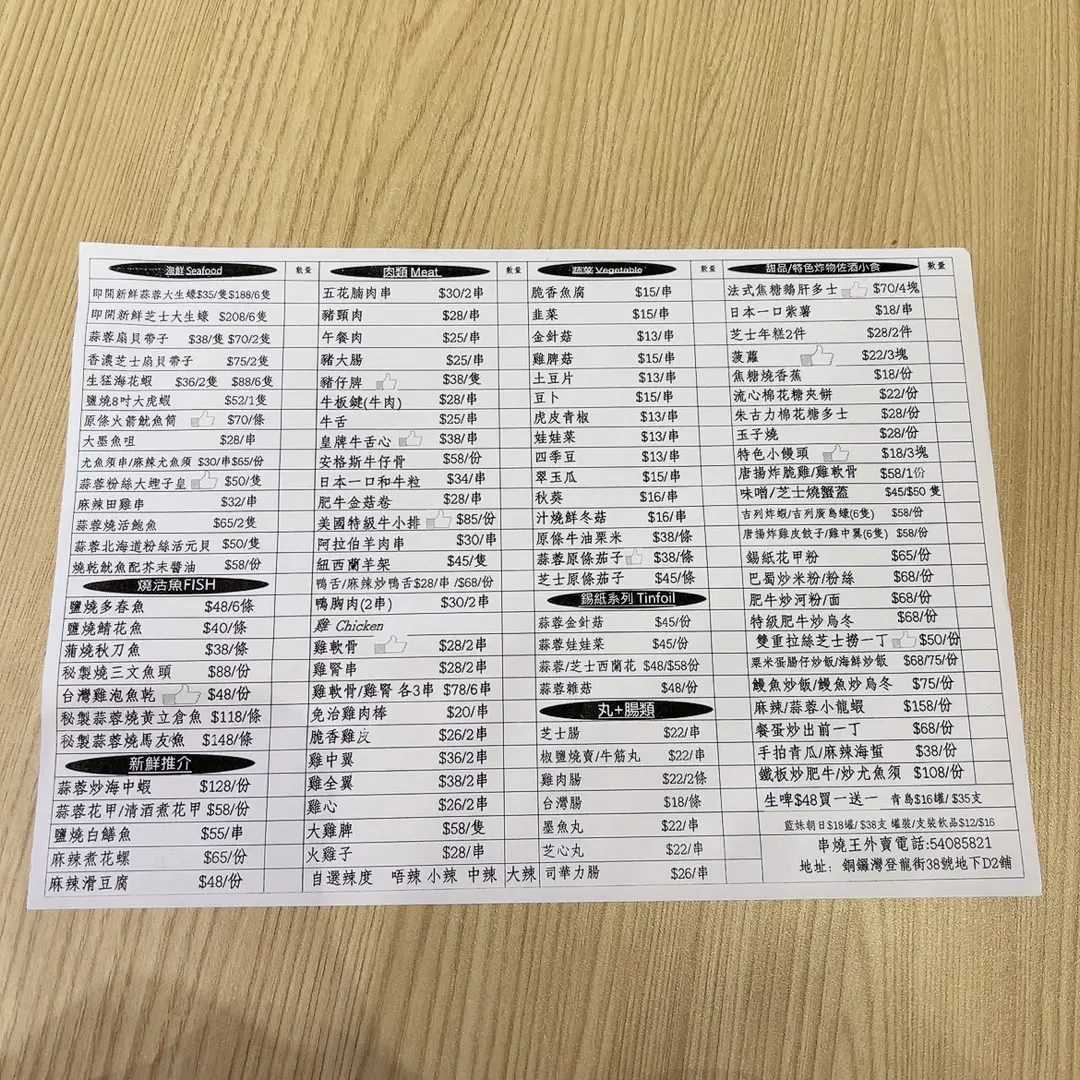 海鮮 Seafood 數量
即開新鮮蒜蓉大生蠔$35/隻$188/6隻
即開新鮮芝士大生蠔 $208/6隻
蒜蓉扇貝帶子 $38/隻 $70/2隻
香濃芝士扇貝帶子 $75/2隻
生猛海花蝦 $36/2隻 $88/6隻
鹽燒8吋大虎蝦 $52/1隻
原條火箭魷魚筒 $70/條
大墨魚咀 $28/串
尤魚須串/麻辣尤魚須 $30/串$65/份
蒜蓉粉絲大蟶子皇 $50/隻
麻辣田雞串 $32/串
蒜蓉燒活鮑魚 $65/2隻
蒜蓉北海道粉絲活元貝 $50/隻
燒乾魷魚配芥末醬油 $58/份
燒活魚FISH
鹽燒多春魚 $48/6條
鹽燒鯖花魚 $40/條
蒲燒秋刀魚 $38/條
秘製燒三文魚頭 $88/份
台灣雞泡魚乾 $48/份
秘製蒜蓉燒黃立倉魚 $118/條
秘製蒜蓉燒馬友魚 $148/條
新鮮推介
蒜蓉炒海中蝦 $128/份
蒜蓉花甲/清酒煮花甲 $58/份
鹽燒白鱔魚 $55/串
麻辣煮花螺 $65/份
麻辣滑豆腐 $48/份
肉類 Meat 數量
五花腩肉串 $30/2串
豬頸肉 $28/串
午餐肉 $25/串
豬大腸 $25/串
豬仔脾 $38/隻
牛板鍵(牛肉) $28/串
牛舌 $25/串
皇牌牛舌心 $38/串
安格斯牛仔骨 $58/份
日本一口和牛粒 $34/串
肥牛金菇卷 $28/串
美國特級牛小排 $85/份
阿拉伯羊肉串 $30/串
紐西蘭羊架 $45/隻
鴨舌/麻辣炒鴨舌$28/串 /$68/份
鴨胸肉(2串) $30/2串
雞 Chicken
雞軟骨 $28/2串
雞腎串 $28/2串
雞軟骨/雞腎 各3串 $78/6串
免治雞肉棒 $20/串
脆香雞皮 $26/2串
雞中翼 $36/2串
雞全翼 $38/2串
雞心 $26/2串
大雞脾 $58/隻
火雞子 $28/串
自選辣度 唔辣 小辣 中辣 大辣
蔬菜 Vegetable 數量
脆香魚腐 $15/串
韭菜 $15/串
金針菇 $13/串
雞脾菇 $15/串
土豆片 $13/串
豆卜 $15/串
虎皮青椒 $13/串
娃娃菜 $13/串
四季豆 $13/串
翠玉瓜 $15/串
秋葵 $16/串
汁燒鮮冬菇 $16/串
原條牛油栗米 $38/條
蒜蓉原條茄子 $38/條
芝士原條茄子 $45/條
錫紙系列 Tinfoil
蒜蓉金針菇 $45/份
蒜蓉娃娃菜 $45/份
蒜蓉/芝士西蘭花 $48/$58份
蒜蓉雜菇 $48/份
丸+腸類
芝士腸 $22/串
椒鹽燒賣/牛筋丸 $22/串
雞肉腸 $22/2條
台灣腸 $18/條
墨魚丸 $22/串
芝心丸 $22/串
司華力腸 $26/串
甜品/特色炸物佐酒小食 數量
法式焦糖鵝肝多士 $70/4塊
日本一口紫薯 $18/串
芝士年糕2件 $28/2件
菠蘿 $22/3塊
焦糖燒香蕉 $18/份
流心棉花糖夾餅 $22/份
朱古力棉花糖多士 $28/份
玉子燒 $28/份
特色小饅頭 $18/3塊
唐揚炸脆雞/雞軟骨 $58/1份
味噌/芝士燒蟹蓋 $45/$50隻
吉列炸蝦/吉列廣島蠔(6隻) $58/份
唐揚炸雞皮餃子/雞中翼(6隻) $58/份
錫紙花甲粉 $65/份
巴蜀炒米粉/粉絲 $68/份
肥牛炒河粉/面 $68/份
特級肥牛炒烏冬 $68/份
雙重拉絲芝士撈一丁 $50/份
粟米蛋腸仔炒飯/海鮮炒飯 $68/75/份
鰻魚炒飯/鰻魚炒烏冬 $75/份
麻辣/蒜蓉小龍蝦 $158/份
餐蛋炒出前一丁 $68/份
手拍青瓜/麻辣海蜇 $38/份
鐵板炒肥牛/炒尤魚須 $108/份
生啤$48買一送一 青島$16罐/ $35支
藍妹朝日$18罐/ $38支 罐裝/支裝飲品$12/$16
串燒王外賣電話:54085821
地址: 銅鑼灣登龍街38號地下D2鋪